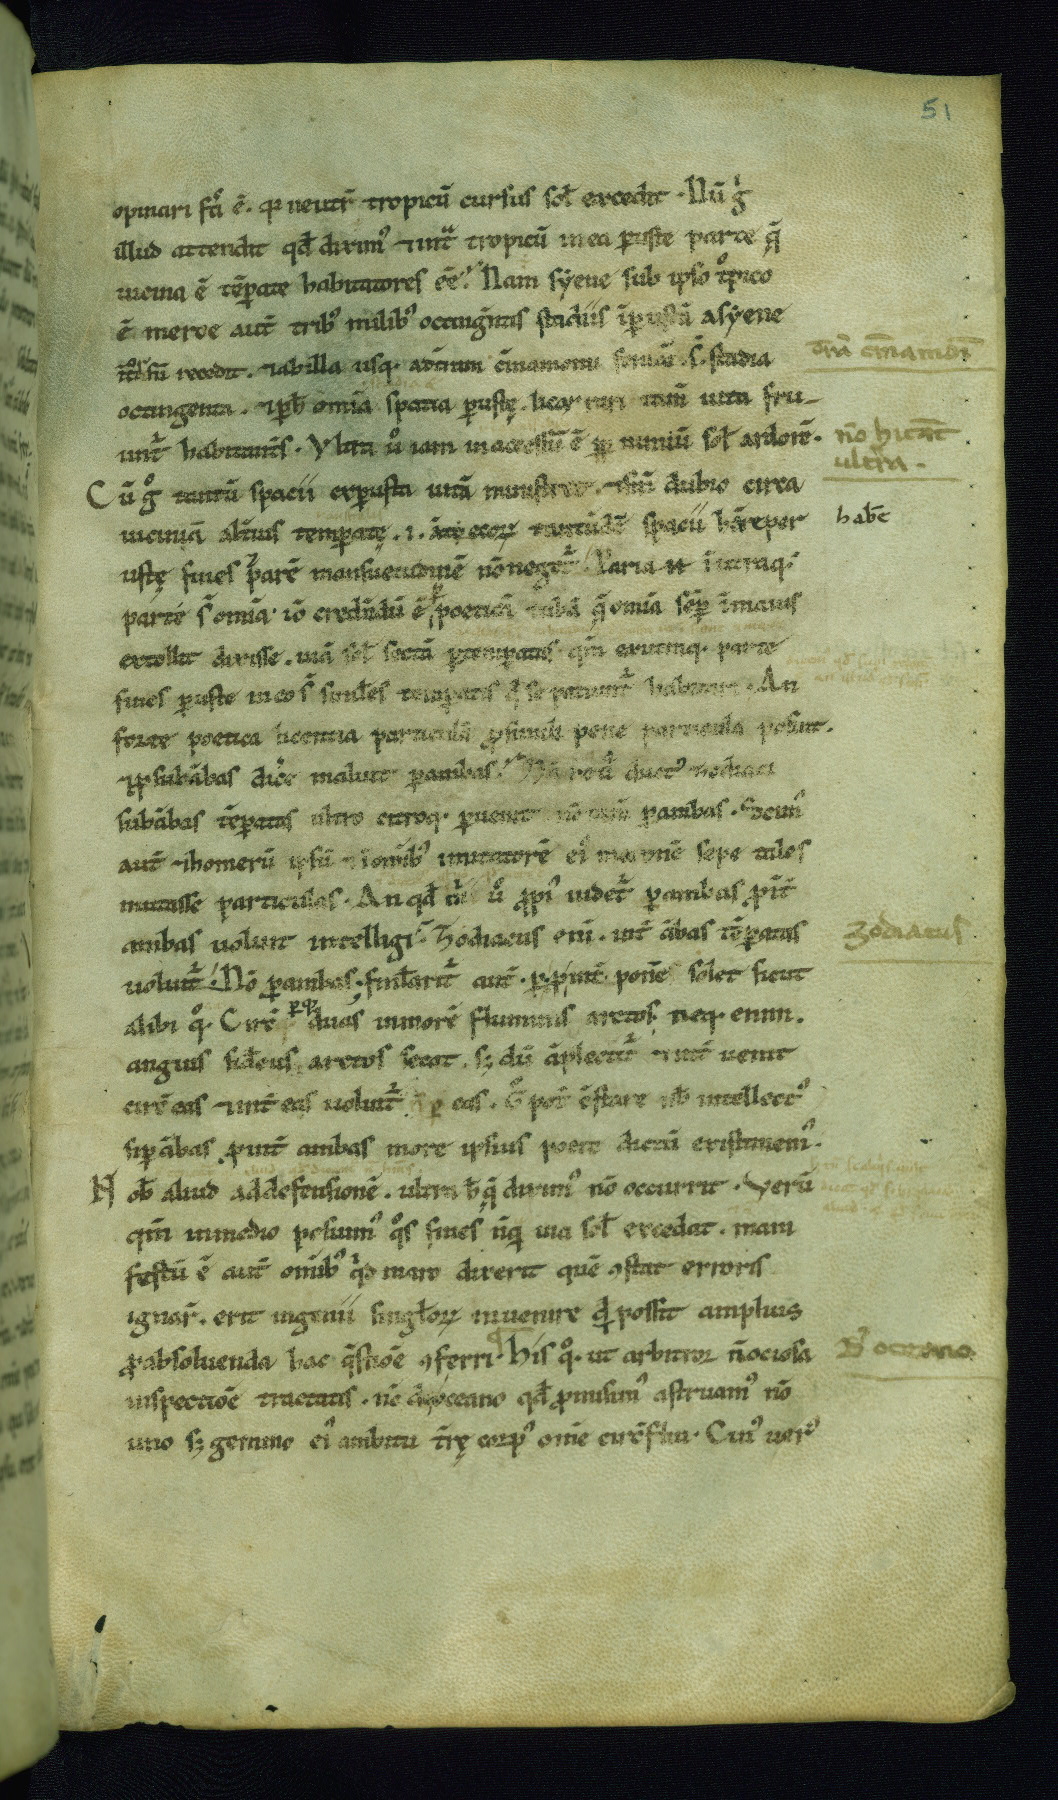 51
opinari fas ē. qa neutr̄ tropicū cursus sol excedit. Nū g̊
illud attendit qd̄ diximꝰ. ⁊ intᵃ tropicū in ea ꝑuste parte q̄
uicina ē tēꝑate habitatores eē. Nam syene sub ipso tͦpico
ē meroe aut̄ tribꝰ milibꝰ octingētis stadiis ī ꝑustā a syene
recedit. ⁊ ab illa usq. ad t̄ram cīnamomi s̄. stadia
octingenta. ⁊ ꝑ h̄ omīa spatia ꝑustę. licet rari tam̄ uita fru-
unt̄ habitant̄s. Vltra uͦ iam inaccessū ē ꝓp nimiū sol ardorē.
Cū gͦ tantū spacii ex ꝑusta uitā ministret. dubio circa
uiciniā alt̄ius temꝑatę. .i. āteeoꝝ tantūdē spacii h̄re ꝑer
ustę fines parē mansuetudinē nō neget̄. Paria n̄ ī utraq;
parte s̄ omīa. iō credn̄dū ē poeticā tubā q̄ omīa sēꝑ ī maius
extollit dixisse. uiā sol sectā ꝑ temꝑatas. qm̄ ex utraq. parte
fines ꝑuste in eo s̄ similes temꝑatis qd se patiunt̄ habitari. An
forte poetica licentia particulā ꝓ simili pene particula posuit.
⁊ ꝓ sub ābas dice maluit ꝑ ambas. Nā re ū ductꝰ zodiaci
sub ābas tēꝑatas ultro citroq. ꝑuenit nō tam̄ ꝑ ambas. Scimꝰ
aut̄ ⁊ homerū ipsū ⁊ ī omībꝰ imitatorē eiꝰ maronē sepe tales
mutasse particulas. An qd̄ m̄ uͦ ꝓpiꝰ uidet̄ ꝑ ambas ꝓ int̄
ambas uoluit intelligi. Zodiacus eni. int̄ ābas tēꝑatas
uoluit̄. Nō ꝑ ambas. familarit̄ aut̄. ꝑ ꝓ int̄ ponē solet sicut
alibi qͦ. Circ̄ ꝑq duas in morē fluminis arctos. neq. enim.
anguis sid̄eus arctos secat. sꝫ dū āplectit̄ ⁊ int̄ uenit
circ̄ eas ⁊ int̄ eas uoluit̄ ñ ꝑ eas. gͦ pot̄ c̄stare nob̄ intellectꝰ
si ꝑ ābas ꝓ int̄ ambas more ipsius poete dictū existimemꝰ.
Nob̄ aliud ad defensionē. ultra h̄ q̄ diximꝰ nō occurrit. Verū
qm̄ in medio posuimꝰ q̊s fines nq̄ uia sol excedat. mani
festū ē aut̄ omībꝰ qd maro dixerit quē ꝯstat erroris
ignar̄. erit ingenii singl̄oꝝ inuenire qd possit amplius
ꝓ absoluenda hac q̄stiōe ꝯferri. His qͦ. ut arbitror n̄ ociosa
inspectiōe tractatis. nc̄ de oceano qd̄ ꝓmisimꝰ astruamꝰ nō
uno sꝫ gemino eiꝰ ambitu t̄rę corpꝰ omē circ̄flui. Cuiꝰ uerꝰ
t̄ra cīnamom̄
nō hitant̄
ultra.
habc̄
zodiacus
D̄ occeano